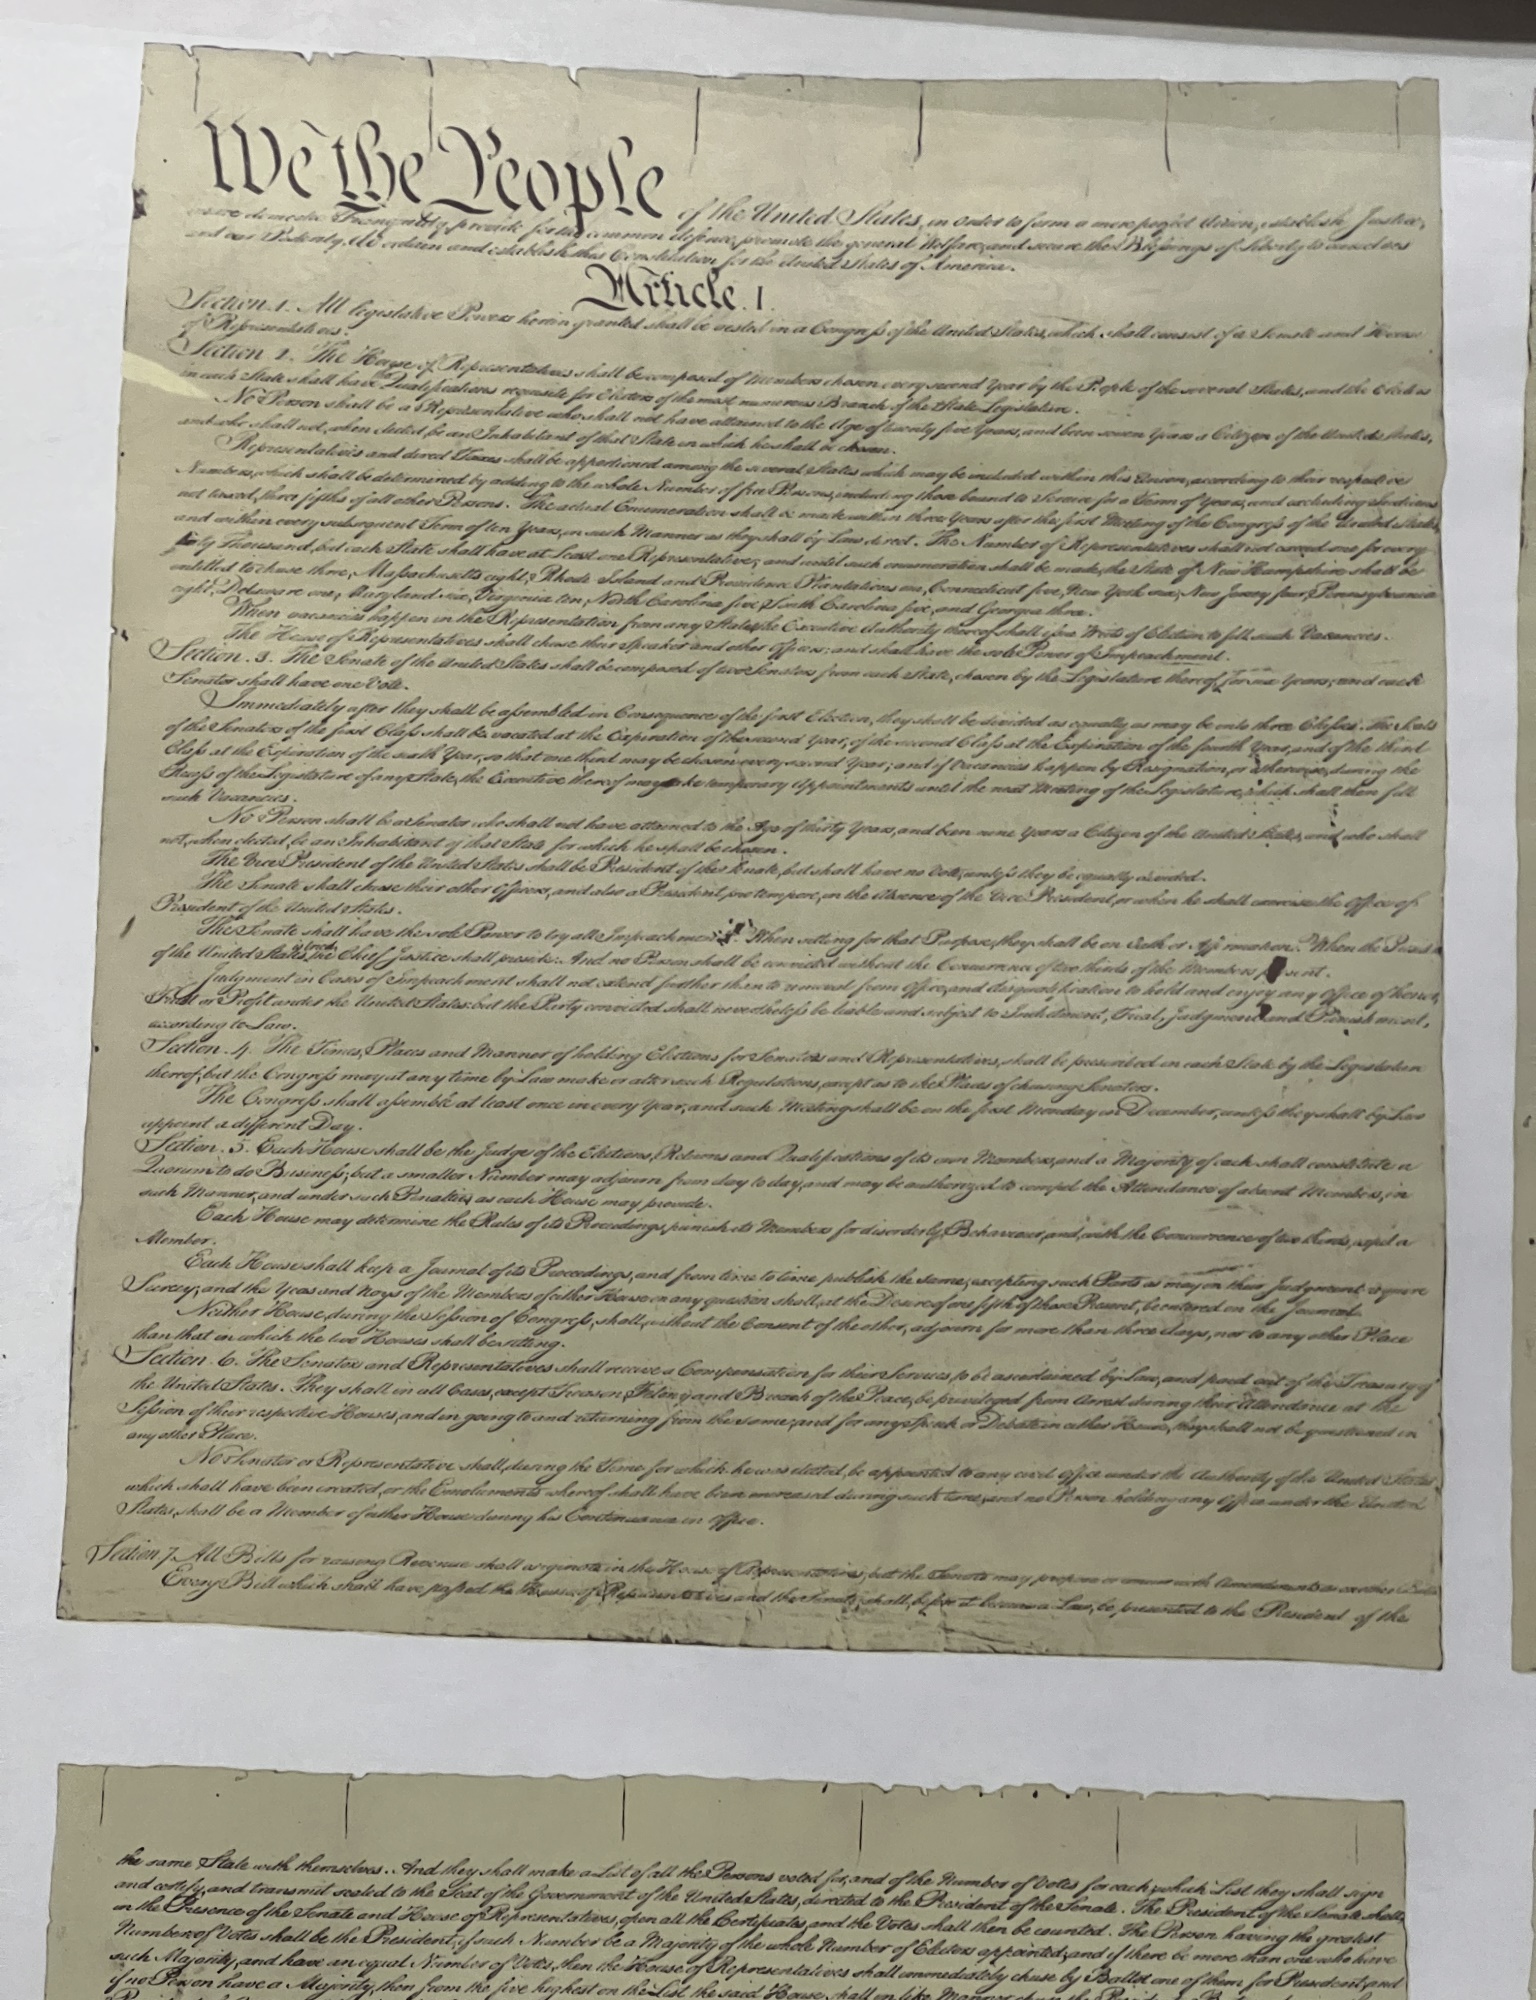 We the People of the United States, in Order to form a more perfect Union, establish Justice,
insure domestic Tranquility, provide for the common defence, promote the general Welfare, and secure the Blessings of Liberty to ourselves
and our Posterity, do ordain and establish this Constitution for the United States of America.
Article. I.
Section. 1. All legislative Powers herein granted shall be vested in a Congress of the United States, which shall consist of a Senate and House
of Representatives.
Section. 2. The House of Representatives shall be composed of Members chosen every second Year by the People of the several States, and the Electors
in each State shall have the Qualifications requisite for Electors of the most numerous Branch of the State Legislature.
No Person shall be a Representative who shall not have attained to the Age of twenty five Years, and been seven Years a Citizen of the United States,
and who shall not, when elected, be an Inhabitant of that State in which he shall be chosen.
Representatives and direct Taxes shall be apportioned among the several States which may be included within this Union, according to their respective
Numbers, which shall be determined by adding to the whole Number of free Persons, including those bound to Service for a Term of Years, and excluding Indians
not taxed, three fifths of all other Persons. The actual Enumeration shall be made within three Years after the first Meeting of the Congress of the United States,
and within every subsequent Term of ten Years, in such Manner as they shall by Law direct. The Number of Representatives shall not exceed one for every
thirty Thousand, but each State shall have at Least one Representative; and until such enumeration shall be made, the State of New Hampshire shall be
entitled to chuse three, Massachusetts eight, Rhode Island and Providence Plantations one, Connecticut five, New York six, New Jersey four, Pennsylvania
eight, Delaware one, Maryland six, Virginia ten, North Carolina five, South Carolina five, and Georgia three.
When vacancies happen in the Representation from any State, the Executive Authority thereof shall issue Writs of Election to fill such Vacancies.
The House of Representatives shall chuse their Speaker and other Officers; and shall have the sole Power of Impeachment.
Section. 3. The Senate of the United States shall be composed of two Senators from each State, chosen by the Legislature thereof, for six Years; and each
Senator shall have one Vote.
Immediately after they shall be assembled in Consequence of the first Election, they shall be divided as equally as may be into three Classes. The Seats
of the Senators of the first Class shall be vacated at the Expiration of the second Year, of the second Class at the Expiration of the fourth Year, and of the third
Class at the Expiration of the sixth Year, so that one third may be chosen every second Year; and if Vacancies happen by Resignation, or otherwise, during the
Recess of the Legislature of any State, the Executive thereof may make temporary Appointments until the next Meeting of the Legislature, which shall then fill
such Vacancies.
No Person shall be a Senator who shall not have attained to the Age of thirty Years, and been nine Years a Citizen of the United States, and who shall
not, when elected, be an Inhabitant of that State for which he shall be chosen.
The Vice President of the United States shall be President of the Senate, but shall have no Vote, unless they be equally divided.
The Senate shall chuse their other Officers, and also a President pro tempore, in the Absence of the Vice President, or when he shall exercise the Office of
President of the United States.
The Senate shall have the sole Power to try all Impeachments. When sitting for that Purpose, they shall be on Oath or Affirmation. When the President
of the United States is tried, the Chief Justice shall preside: And no Person shall be convicted without the Concurrence of two thirds of the Members present.
Judgment in Cases of Impeachment shall not extend further than to removal from Office, and disqualification to hold and enjoy any Office of honor,
Trust or Profit under the United States: but the Party convicted shall nevertheless be liable and subject to Indictment, Trial, Judgment and Punishment,
according to Law.
Section. 4. The Times, Places and Manner of holding Elections for Senators and Representatives, shall be prescribed in each State by the Legislature
thereof; but the Congress may at any time by Law make or alter such Regulations, except as to the Places of chusing Senators.
The Congress shall assemble at least once in every Year, and such Meeting shall be on the first Monday in December, unless they shall by Law
appoint a different Day.
Section. 5. Each House shall be the Judge of the Elections, Returns and Qualifications of its own Members, and a Majority of each shall constitute a
Quorum to do Business; but a smaller Number may adjourn from day to day, and may be authorized to compel the Attendance of absent Members, in
such Manner, and under such Penalties as each House may provide.
Each House may determine the Rules of its Proceedings, punish its Members for disorderly Behaviour, and, with the Concurrence of two thirds, expel a
Member.
Each House shall keep a Journal of its Proceedings, and from time to time publish the same, excepting such Parts as may in their Judgment require
Secrecy; and the Yeas and Nays of the Members of either House on any question shall, at the Desire of one fifth of those Present, be entered on the Journal.
Neither House, during the Session of Congress, shall, without the Consent of the other, adjourn for more than three days, nor to any other Place
than that in which the two Houses shall be sitting.
Section. 6. The Senators and Representatives shall receive a Compensation for their Services, to be ascertained by Law, and paid out of the Treasury of
the United States. They shall in all Cases, except Treason, Felony and Breach of the Peace, be privileged from Arrest during their Attendance at the
Session of their respective Houses, and in going to and returning from the same; and for any Speech or Debate in either House, they shall not be questioned in
any other Place.
No Senator or Representative shall, during the Time for which he was elected, be appointed to any civil Office under the Authority of the United States,
which shall have been created, or the Emoluments whereof shall have been encreased during such time; and no Person holding any Office under the United
States, shall be a Member of either House during his Continuance in Office.
Section 7. All Bills for raising Revenue shall originate in the House of Representatives; but the Senate may propose or concur with Amendments as on other Bills.
Every Bill which shall have passed the House of Representatives and the Senate, shall, before it become a Law, be presented to the President of the
the same State with themselves. And they shall make a List of all the Persons voted for, and of the Number of Votes for each; which List they shall sign
and certify, and transmit sealed to the Seat of the Government of the United States, directed to the President of the Senate. The President of the Senate shall,
in the Presence of the Senate and House of Representatives, open all the Certificates, and the Votes shall then be counted. The Person having the greatest
Number of Votes shall be the President, if such Number be a Majority of the whole Number of Electors appointed; and if there be more than one who have
such Majority, and have an equal Number of Votes, then the House of Representatives shall immediately chuse by Ballot one of them for President; and
if no Person have a Majority, then from the five highest on the List the said House shall in like Manner chuse the President.